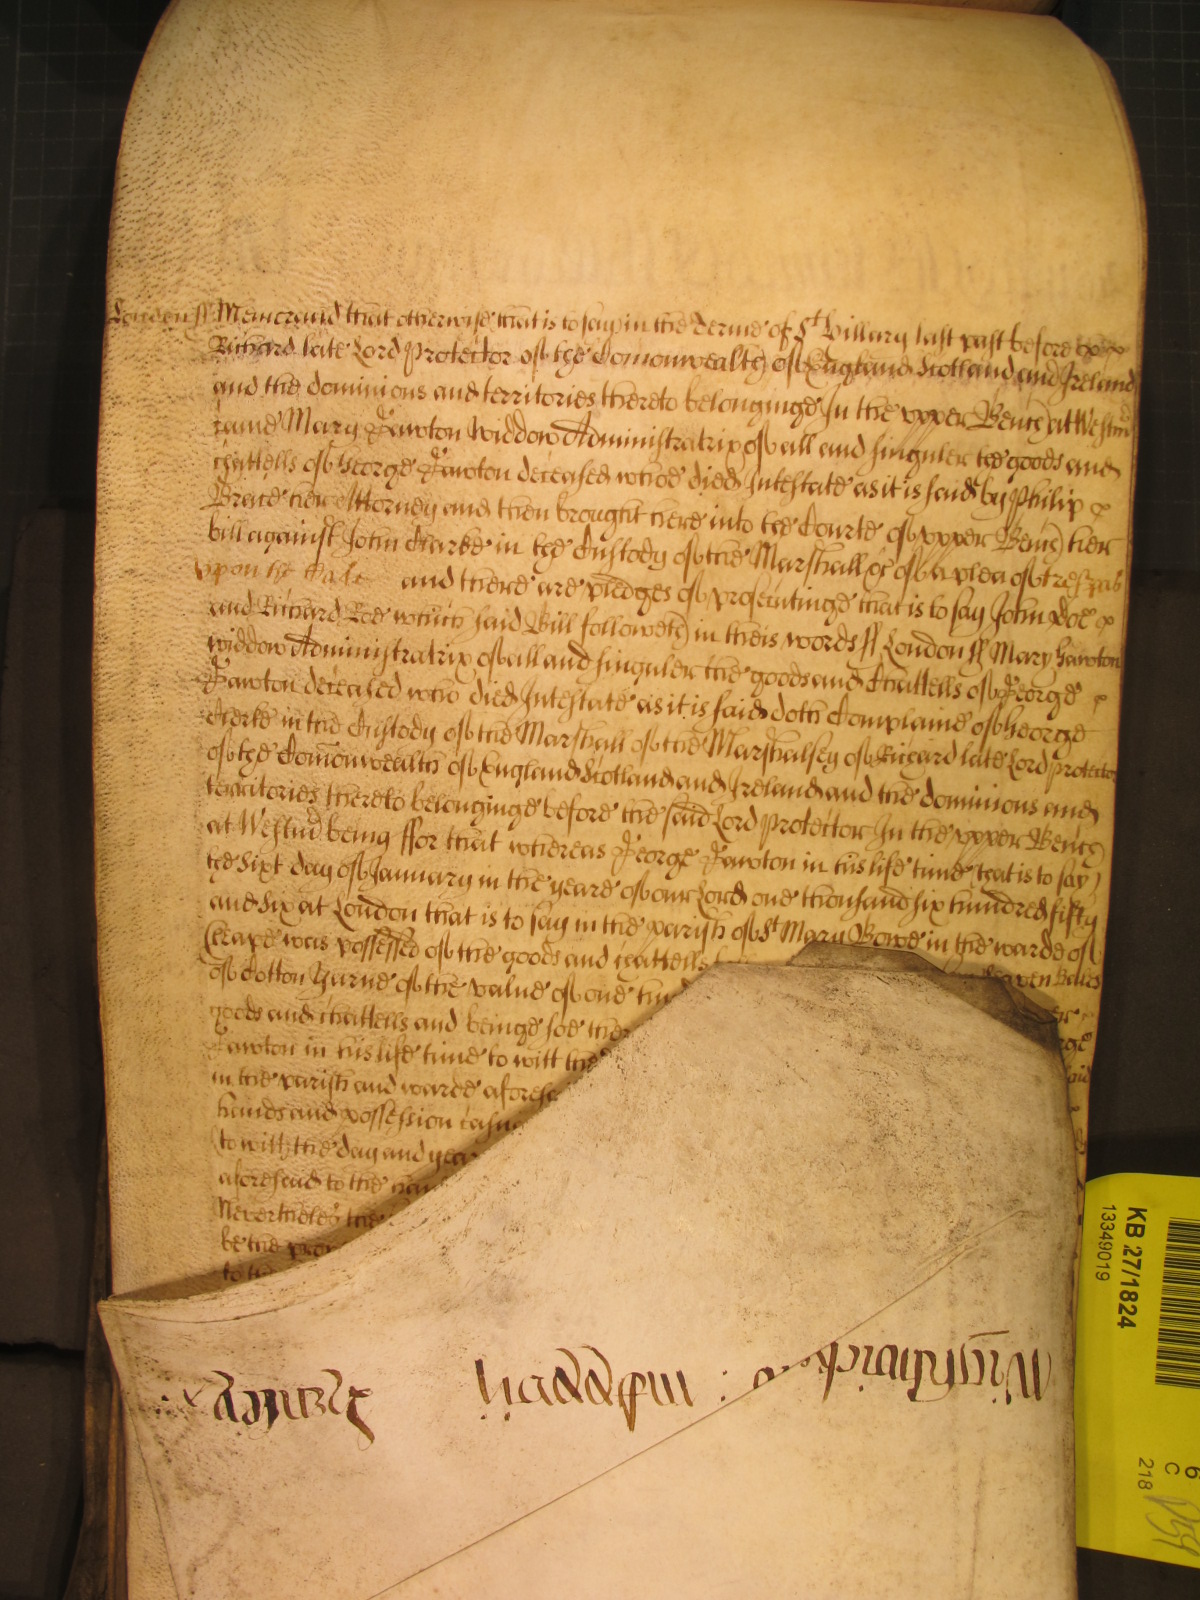 London ss Memorand that otherwise that is to say in the Terme of St Hillary last past before
Richard late Lord Protector of the Comonwealth of England Scotland and Ireland
and the dominions and territories thereto belonginge In the upper Bench at Westm
came Mary Hawton widdow Administratrix of all and singuler the goods and
chattells of George Hawton deceased whoe died Intestate as it is said by Philip
her Attorney and then brought here into the Courte of upper Bench her
bill against John Clarke in the Custody of the Marshall &c of a plea of trespas
upon the Case and there are pledges of prosecutinge that is to say John Doe
and Richard Roe which said Bill followeth in theis words ss London ss Mary Hawton
widdow Administratrix of all and singuler the goods and Chattells of George
Hawton deceased who died Intestate as it is said doth Complaine of George
Clerke in the Custody of the Marshall of the Marshalsey of Richard late Lord protector
of the Comonwealth of England Scotland and Ireland and the dominions and
territories thereto belonginge before the said Lord Protector In the upper Bench
at Westm being ffor that whereas George Hawton in his life time that is to say
the sixt day of January in the yeare of our Lord one thousand six hundred fifty
and six at London that is to say in the parish of St Mary Bowe in the warde of
Cheape was possessed of the goods and chattells
of Cotton yarne of the value of one
goods and chattells and beinge soe
Hawton in his life time to witt the
in the parish and warde aforesd
hands and possession
to witt the day and year
aforesaid to the
Neverthelesse the
be the
to the
KB 27/1824
13349019
6
C
218